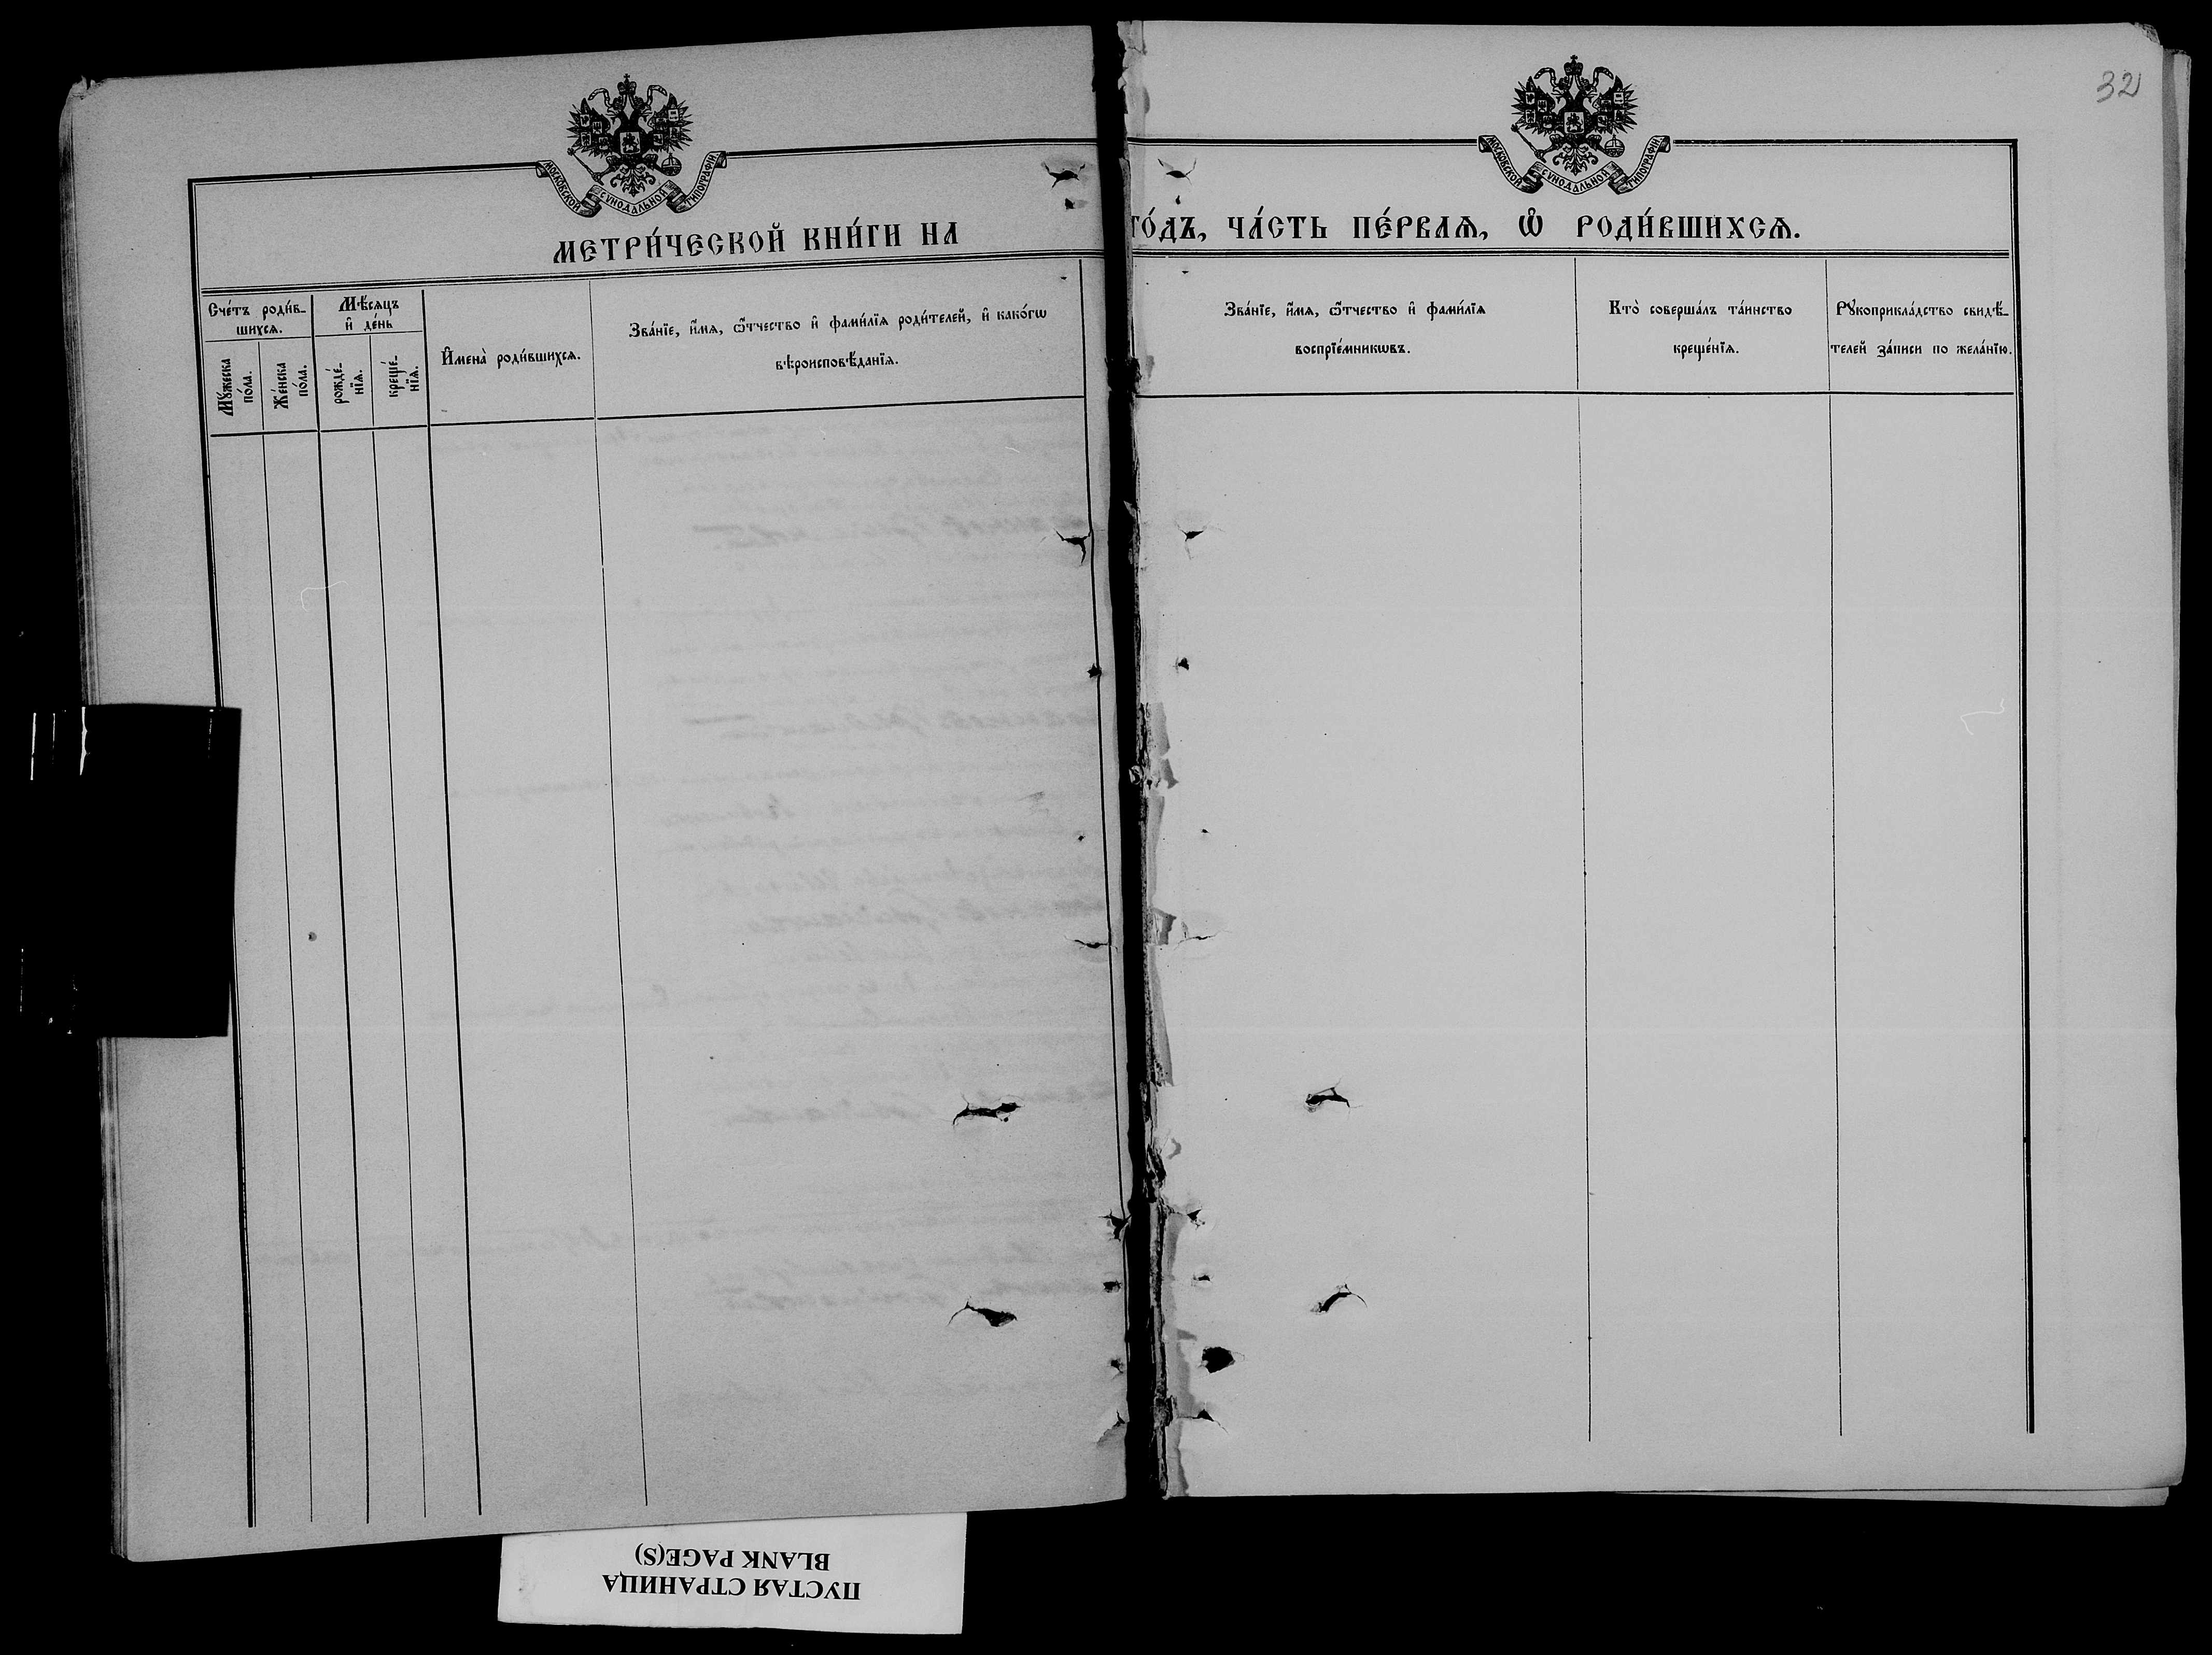 32
МОСКОВСКОЙ СѴНОДАЛЬНОЙ ТИПОГРАФІИ.
МОСКОВСКОЙ СѴНОДАЛЬНОЙ ТИПОГРАФІИ.
МЕТРИ́ЧЕСКОЙ КНИ́ГИ НА ГО́ДЪ, ЧА́СТЬ ПЕ́РВАѦ, Ѽ РОДИ́ВШИХСѦ.
Сче́тъ роди́в-
шихсѧ.
Мꙋ́жеска
по́ла.
Же́нска
по́ла.
Мѣ́сѧцъ
и҆ де́нь
рожде́-
нїѧ.
креще́-
нїѧ.
И҆мена̀ роди́вшихсѧ.
Зва́нїе, и҆́мѧ, ѻ҆́тчество и҆ фами́лїѧ роди́телей, и҆ како́гѡ
вѣроисповѣ́данїѧ.
Зва́нїе, и҆́мѧ, ѻ҆́тчество и҆ фами́лїѧ
воспрїе́мникѡвъ.
Кто̀ соверша́лъ та́инство
креще́нїѧ.
Рꙋкоприкла́дство свидѣ́-
телей за́писи по жела́нїю.
ПУСТАЯ СТРАНИЦА
BLANK PAGE(S)